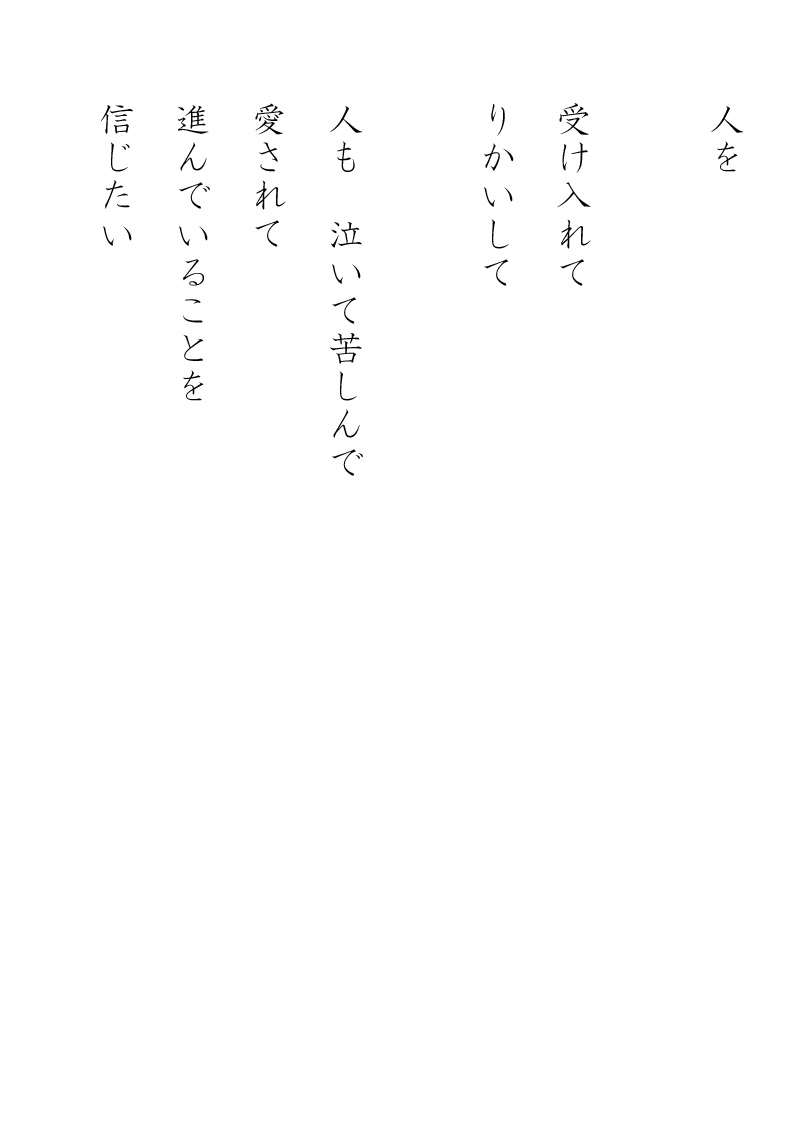 人を
受け入れて
りかいして
人も　泣いて苦しんで
愛されて
進んでいることを
信じたい